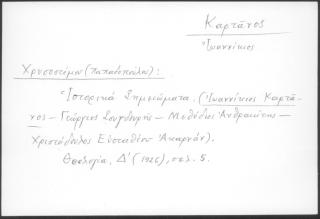 Καρτάνος
Ἰωαννίκιος
Χρυσοστόμου (Παπαδοπούλου):
Ἱστορικὰ Σημειώματα. (Ἰωαννίκιος Καρτά-
νος – Γεώργιος Σουγδουρῆς – Μεθόδιος Ἀνθρακίτης –
Χριστόδουλος Εὐσταθίου Ἀκαρνάν).
Θεολογία, Δ' (1926), σελ. 5.